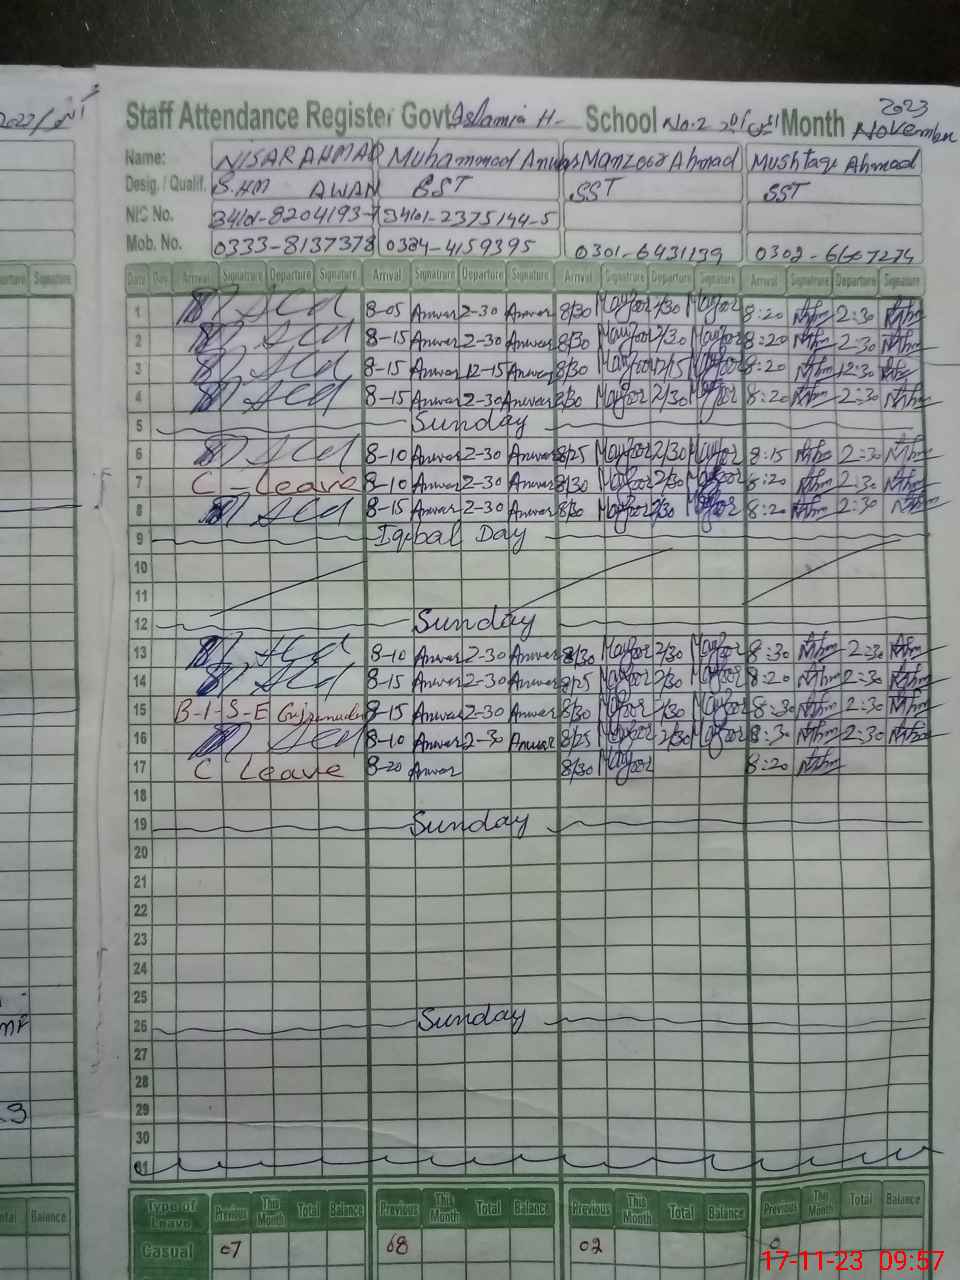 2023
Staff Attendance Register Govt Islamia H- School No.2 Month November
Name: NISAR AHMAD Muhammad Anwar Manzoor Ahmad Mushtaq Ahmad
Desig. / Qualif. S.HM AWAN EST SST SST
NIC No. 34101-8204193- 34101-2375144-5
Mob. No. 0333-8137378 0324-4159395 0301-6431139 0302-6607274
Date Day Arrival Signature Departure Signature Arrival Signature Departure Signature Arrival Signature Departure Signature Arrival Signature Departure Signature
1 8-05 Anwar 2-30 Anwar 8/30 2/30 8:20 2:30
2 8-15 Anwar 2-30 Anwar 8/30 2/30 8:20 2:30
3 8-15 Anwar 12-15 Anwar 8/30 12/15 8:20 12:30
4 8-15 Anwar 2-30 Anwar 8/30 2/30 8:20 2:30
5 Sunday
6 8-10 Anwar 2-30 Anwar 8/25 2/30 8:15 2:30
7 C - Leave 8-10 Anwar 2-30 Anwar 8/30 2/30 8:20 2:30
8 8-15 Anwar 2-30 Anwar 8/30 2/30 8:20 2:30
9 Iqbal Day
10
11
12 Sunday
13 8-10 Anwar 2-30 Anwar 8/30 2/30 8:30 2:30
14 8-15 Anwar 2-30 Anwar 8/25 2/30 8:20 2:30
15 B-I-S-E Gujranwala 8-15 Anwar 2-30 Anwar 8/30 2/30 8:30 2:30
16 8-10 Anwar 2-30 Anwar 8/25 2/30 8:30 2:30
17 C Leave 8-20 Anwar 8/30 8:20
18
19 Sunday
20
21
22
23
24
25
26 Sunday
27
28
29
30
31
Type of Leave Previous This Month Total Balance Previous This Month Total Balance Previous This Month Total Balance Previous This Month Total Balance
Casual 07 08 02
17-11-23 09:57